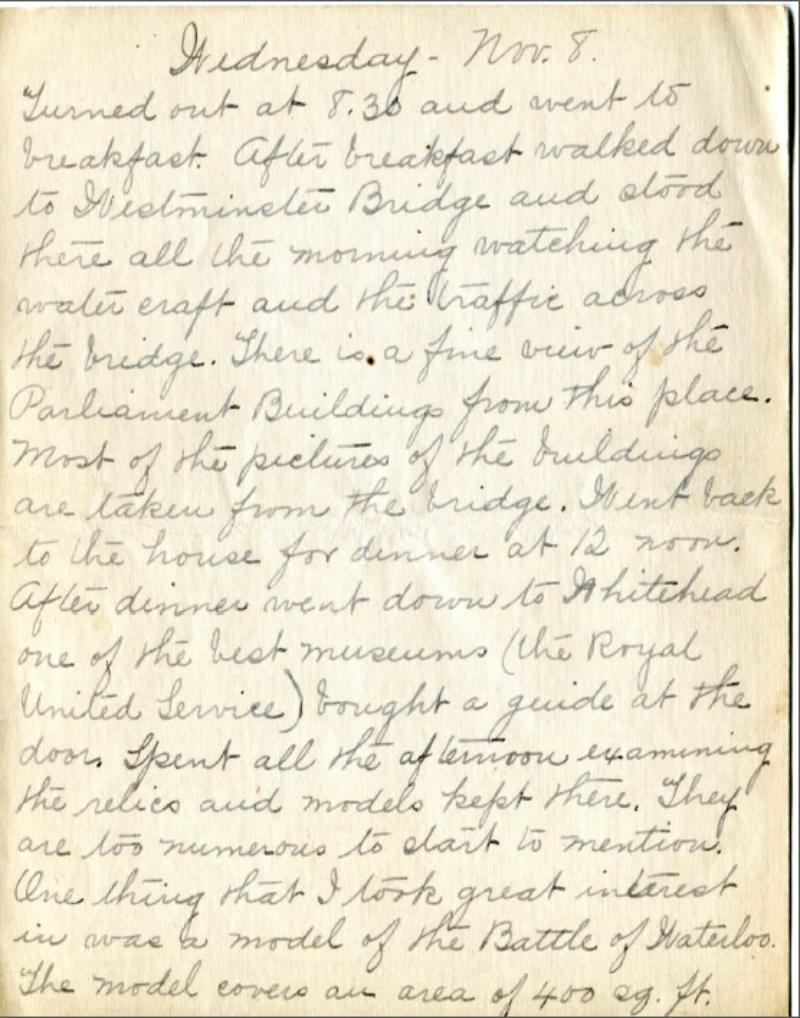 Wednesday - Nov. 8.
Turned out at 8.30 and went to
breakfast. After breakfast walked down
to Westminster Bridge and stood
there all the morning watching the
water craft and the traffic across
the bridge. There is a fine view of the
Parliament Buildings from this place.
Most of the pictures of the buildings
are taken from the bridge. Went back
to the house for dinner at 12 noon.
After dinner went down to Whitehead
one of the best museums (the Royal
United Service) bought a guide at the
door. Spent all the afternoon examining
the relics and models kept there. They
are too numerous to start to mention.
One thing that I took great interest
in was a model of the Battle of Waterloo.
The model covers an area of 400 sq. ft.